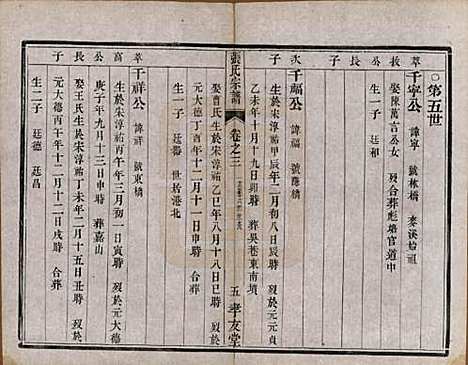 ○第五世
萃公長子
千寧公 諱寧 號林橋 麥溪始祖
娶陳萬言公女 歿合葬彪塘官道中
生一子 廷和
次子
千福公 諱福 號蔭橋
生於宋淳祐甲辰年二月初六日辰時 歿於元元貞
乙未年十月十九日卯時 葬吳巷東南墳
張氏宗譜 卷之三 五 孝友堂
娶曹氏生於宋淳祐乙巳年八月十八日巳時 歿於
元大德丁酉年十二月初一日 合葬
生一子 廷 世居港北
萃公高子
千祥公 諱祥 號東橋
生於宋淳祐丙午年三月初一日寅時 歿於元大德
庚子年九月十三日亥時 葬嘉山
娶王氏生於宋淳祐丁未年二月十五日丑時 歿於
元大德丙午年十二月十二日戌時 合葬
生二子 廷德 廷昌